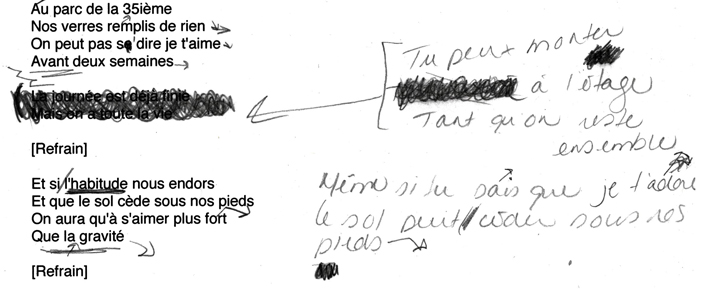 Au parc de la 35ième
Nos verres remplis de rien
On peut pas se dire je t'aime
Avant deux semaines
La journée est déjà finie
Mais on a toute la vie
[Refrain]
Et si l'habitude nous endors
Et que le sol cède sous nos pieds
On aura qu'à s'aimer plus fort
Que la gravité
[Refrain]
Tu peux monter
à l'étage
Tant qu'on reste
ensemble
Même si tu sais que je t'adore
le sol peut céder sous nos
pieds